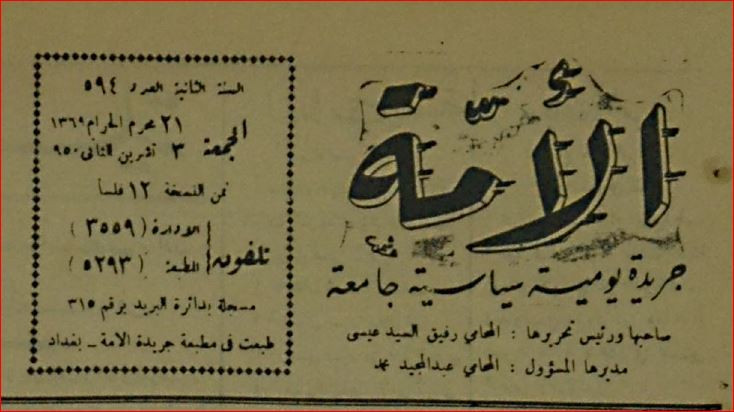 الأمة
جريدة يومية سياسية جامعة
صاحبها ورئيس تحريرها : المحامي رفيق السيد عيسى
مديرها المسؤول : المحامي عبدالمجيد محمد
السنة الثانية العدد ٥٩٤
الجمعة
٢١ محرم الحرام ١٣٦٩
٣ تشرين الثاني ٩٥٠
ثمن النسخة ١٢ فلساً
تلفون
الادارة ( ٣٥٥٩ )
المطبعة ( ٥٢٩٣ )
مسجلة بدائرة البريد برقم ٣١٥
طبعت في مطبعة جريدة الامة ــ بغداد